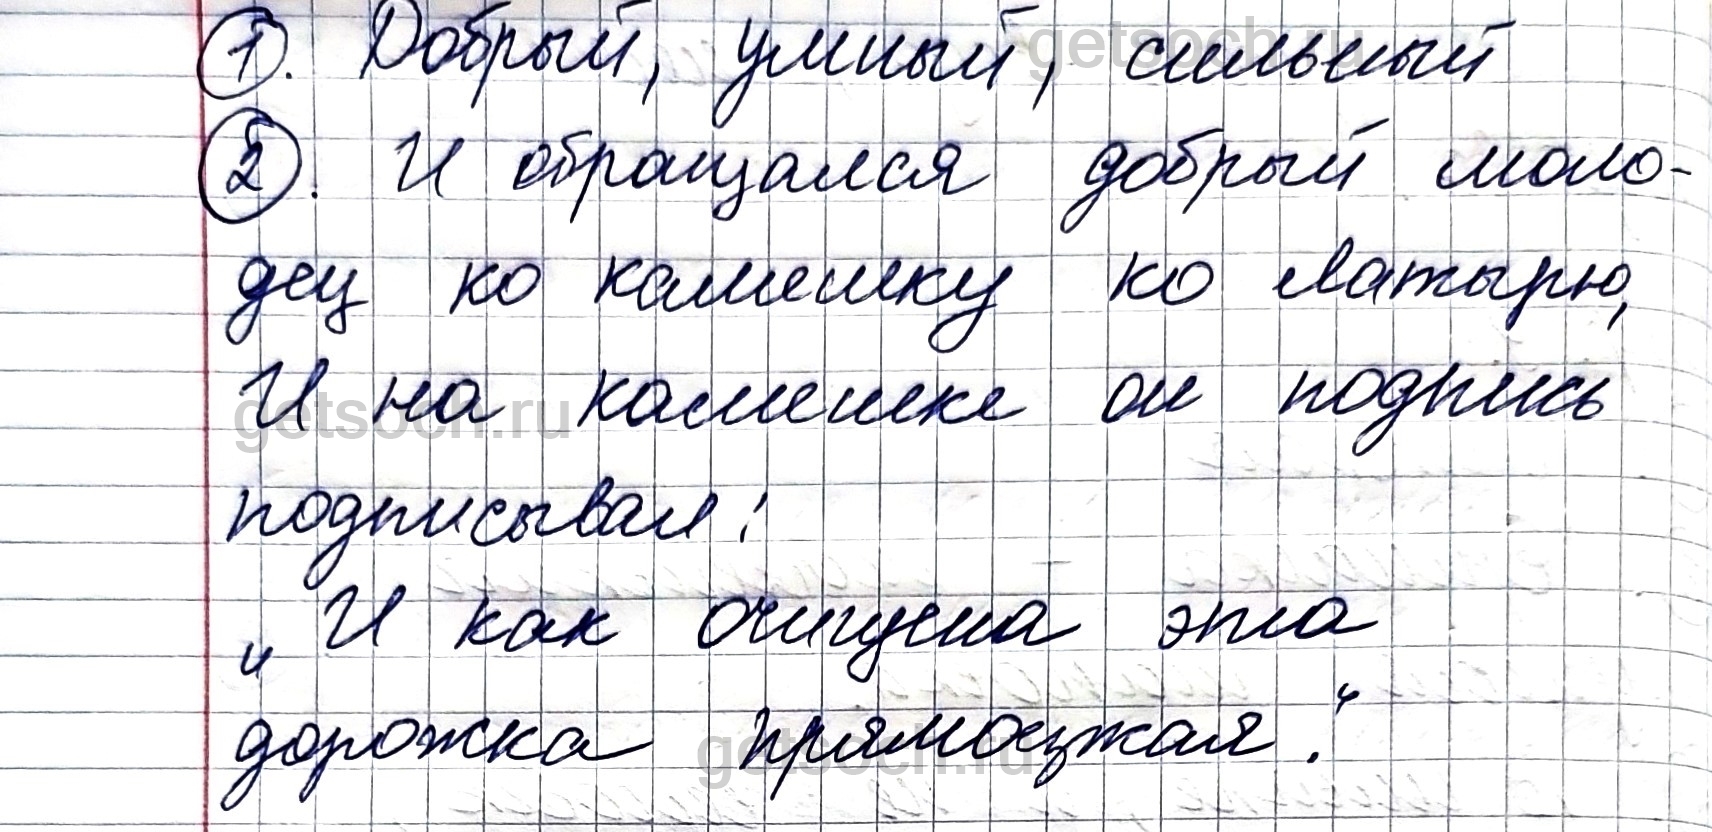 1. Добрый, умный, сильный
2. И обращался добрый моло-
дец ко камешку ко Латырю,
И на камешке он подпись
подписывал:
„И как очищена эта
дорожка прямоезжая.“
getsoch.ru
getsoch.ru
getsoch.ru